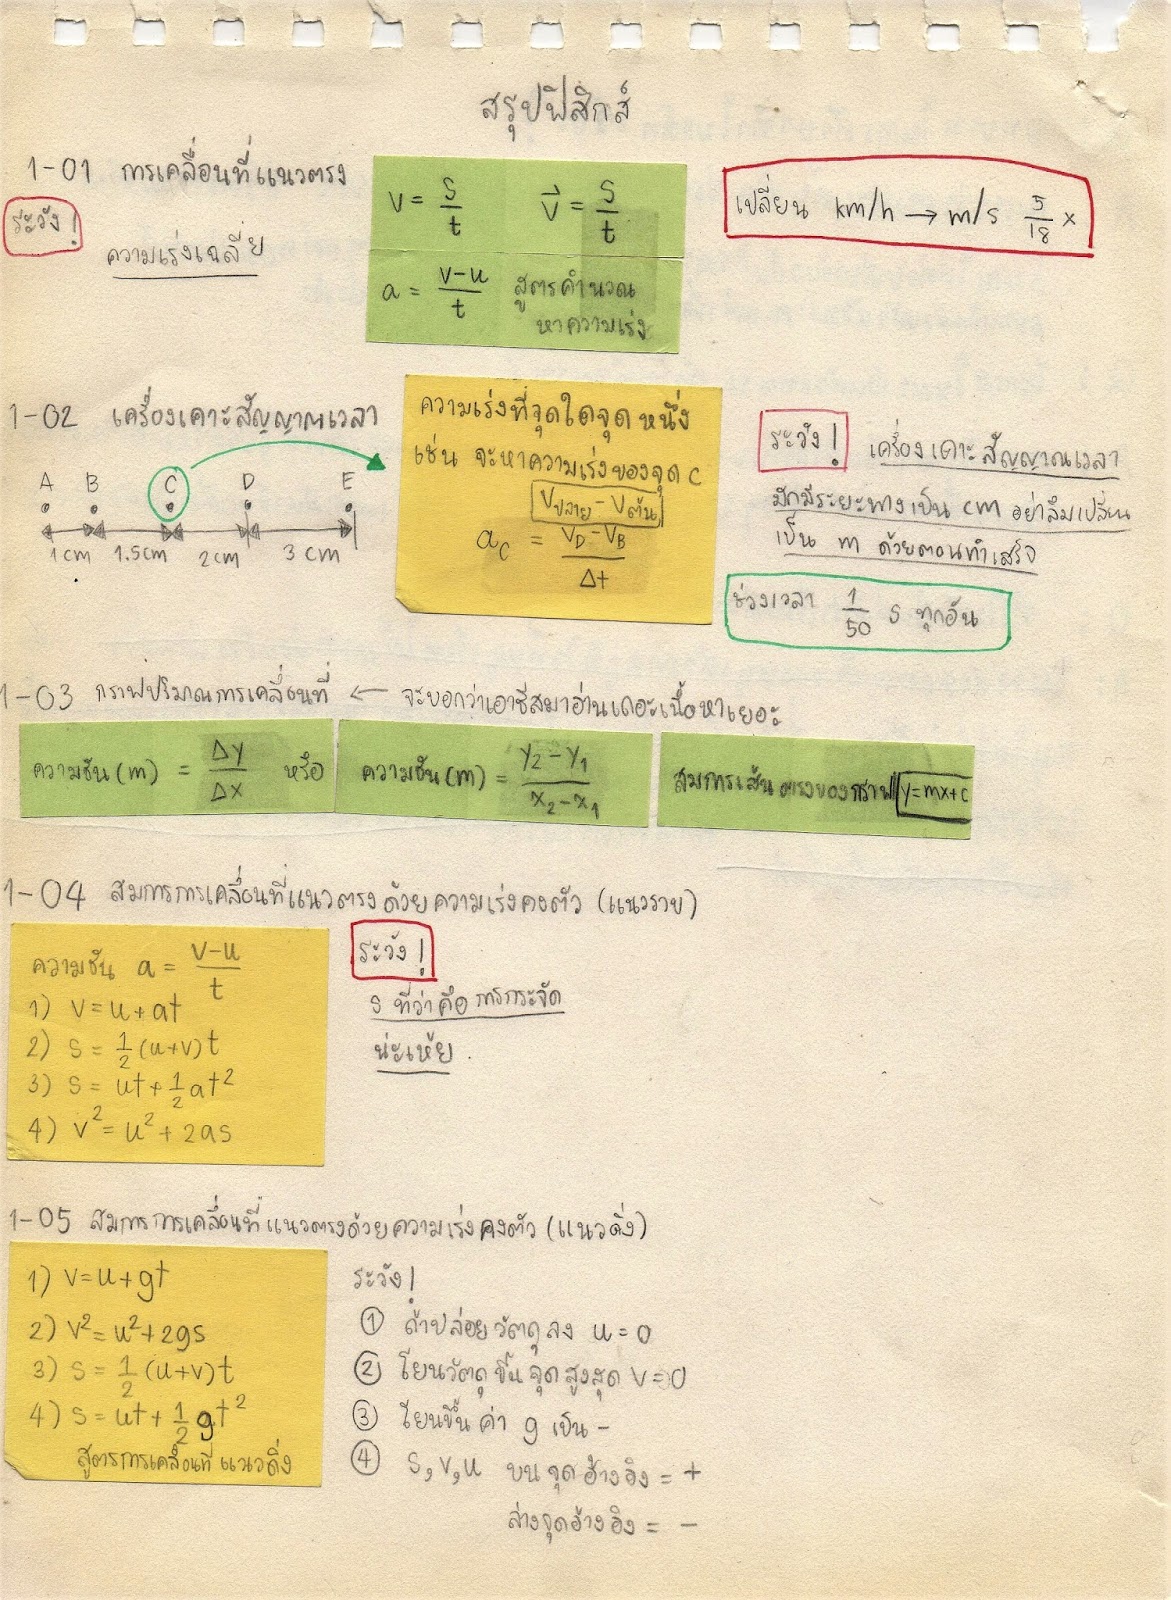 สรุปฟิสิกส์
1-01 การเคลื่อนที่แนวตรง
ระวัง!
ความเร่งเฉลี่ย
v = s/t
v⃗ = s/t
a = (v-u)/t สูตรคำนวณ
หาความเร่ง
เปลี่ยน km/h → m/s 5/18 x
1-02 เครื่องเคาะสัญญาณเวลา
A B C D E
1 cm 1.5cm 2cm 3 cm
ความเร่งที่จุดใดจุดหนึ่ง
เช่น จะหาความเร่งของจุด C
Vปลาย - Vต้น
a_C = (V_D - V_B)/Δt
ระวัง! เครื่องเคาะสัญญาณเวลา
มักมีระยะทางเป็น cm อย่าลืมเปลี่ยน
เป็น m ด้วยตอนทำเสร็จ
ช่วงเวลา 1/50 s ทุกอัน
1-03 กราฟปริมาณการเคลื่อนที่ ← จะบอกว่าเอาชีสมาอ่านเถอะเนื้อหาเยอะ
ความชัน (m) = Δy/Δx หรือ
ความชัน (m) = (y₂ - y₁)/(x₂ - x₁)
สมการเส้นตรงของกราฟ y=mx+c
1-04 สมการการเคลื่อนที่แนวตรงด้วยความเร่งคงตัว (แนวราบ)
ความชัน a = (v-u)/t
1) v = u + at
2) s = 1/2 (u+v) t
3) s = ut + 1/2 at²
4) v² = u² + 2as
ระวัง!
s ที่ว่าคือ การกระจัด
น่ะเห้ย.
1-05 สมการการเคลื่อนที่แนวตรงด้วยความเร่งคงตัว (แนวดิ่ง)
1) v = u + gt
2) v² = u² + 2gs
3) s = 1/2 (u+v) t
4) s = ut + 1/2 gt²
สูตรการเคลื่อนที่แนวดิ่ง
ระวัง!
① ถ้าปล่อยวัตถุลง u = 0
② โยนวัตถุขึ้น จุดสูงสุด v = 0
③ โยนขึ้น ค่า g เป็น -
④ s, v, u บนจุดอ้างอิง = +
ล่างจุดอ้างอิง = -